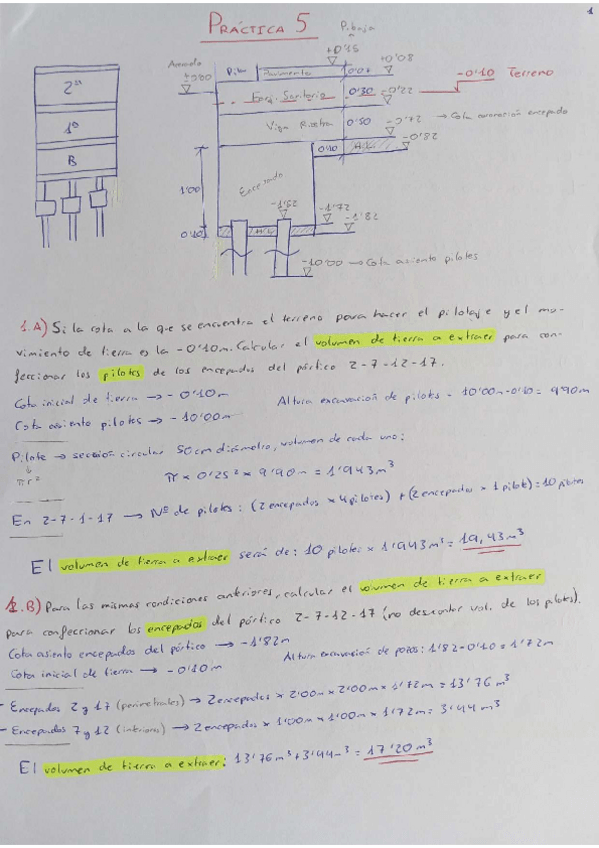 1
PRÁCTICA 5
P. baja
+0'15
+0'08
Pilar
Pavimento
0'07
-0'10 Terreno
Forj. Sanitario
0'30
-0'22
Viga Riostra
0'50
-0'72 → Cota coronación encepado
-0'82
0'10
H.L.
2ª
1º
B
1'00
Encepado
-1'52
-1'72
-1'82
0'10
H.L.
-10'00 → Cota asiento pilotes
1.A) Si la cota a la que se encuentra el terreno para hacer el pilotaje y el mo-
vimiento de tierra es la -0'10m. Calcular el volumen de tierra a extraer para con-
feccionar los pilotes de los encepados del pórtico 2-7-12-17.
Cota inicial de tierra → -0'10m
Altura excavación de pilotes = 10'00m-0'10 = 9'90m
Cota asiento pilotes → -10'00m
Pilote → sección circular 50cm diámetro, volumen de cada uno:
πr²
π x 0'25² x 9'90m = 1'943m³
En 2-7-1-17 → Nº de pilotes: (2 encepados x 4 pilotes) + (2 encepados x 1 pilote) = 10 pilotes
El volumen de tierra a extraer será de: 10 pilotes x 1'943m³ = 19,43m³
1.B) Para las mismas condiciones anteriores, calcular el volumen de tierra a extraer
para confeccionar los encepados del pórtico 2-7-12-17 (no descontar vol. de los pilotes).
Cota asiento encepados del pórtico → -1'82m
Altura excavación de pozos: 1'82-0'10 = 1'72m
Cota inicial de tierra → -0'10m
- Encepados 2 y 17 (perimetrales) → 2 encepados x 2'00m x 2'00m x 1'72m = 13'76m³
- Encepados 7 y 12 (interiores) → 2 encepados x 1'00m x 1'00m x 1'72m = 3'44m³
El volumen de tierra a extraer: 13'76m³+3'44m³ = 17'20m³